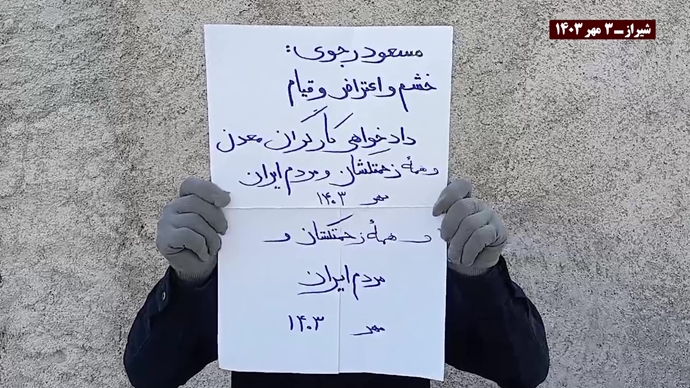 شیراز_ ۳ مهر ۱۴۰۳
مسعود رجوی:
خشم و اعتراض و قیام
دادخواهی کارگران معدن
و همهٔ زحمتکشان و مردم ایران
مهر ۱۴۰۳
و همهٔ زحمتکشان و
مردم ایران
مهر ۱۴۰۳